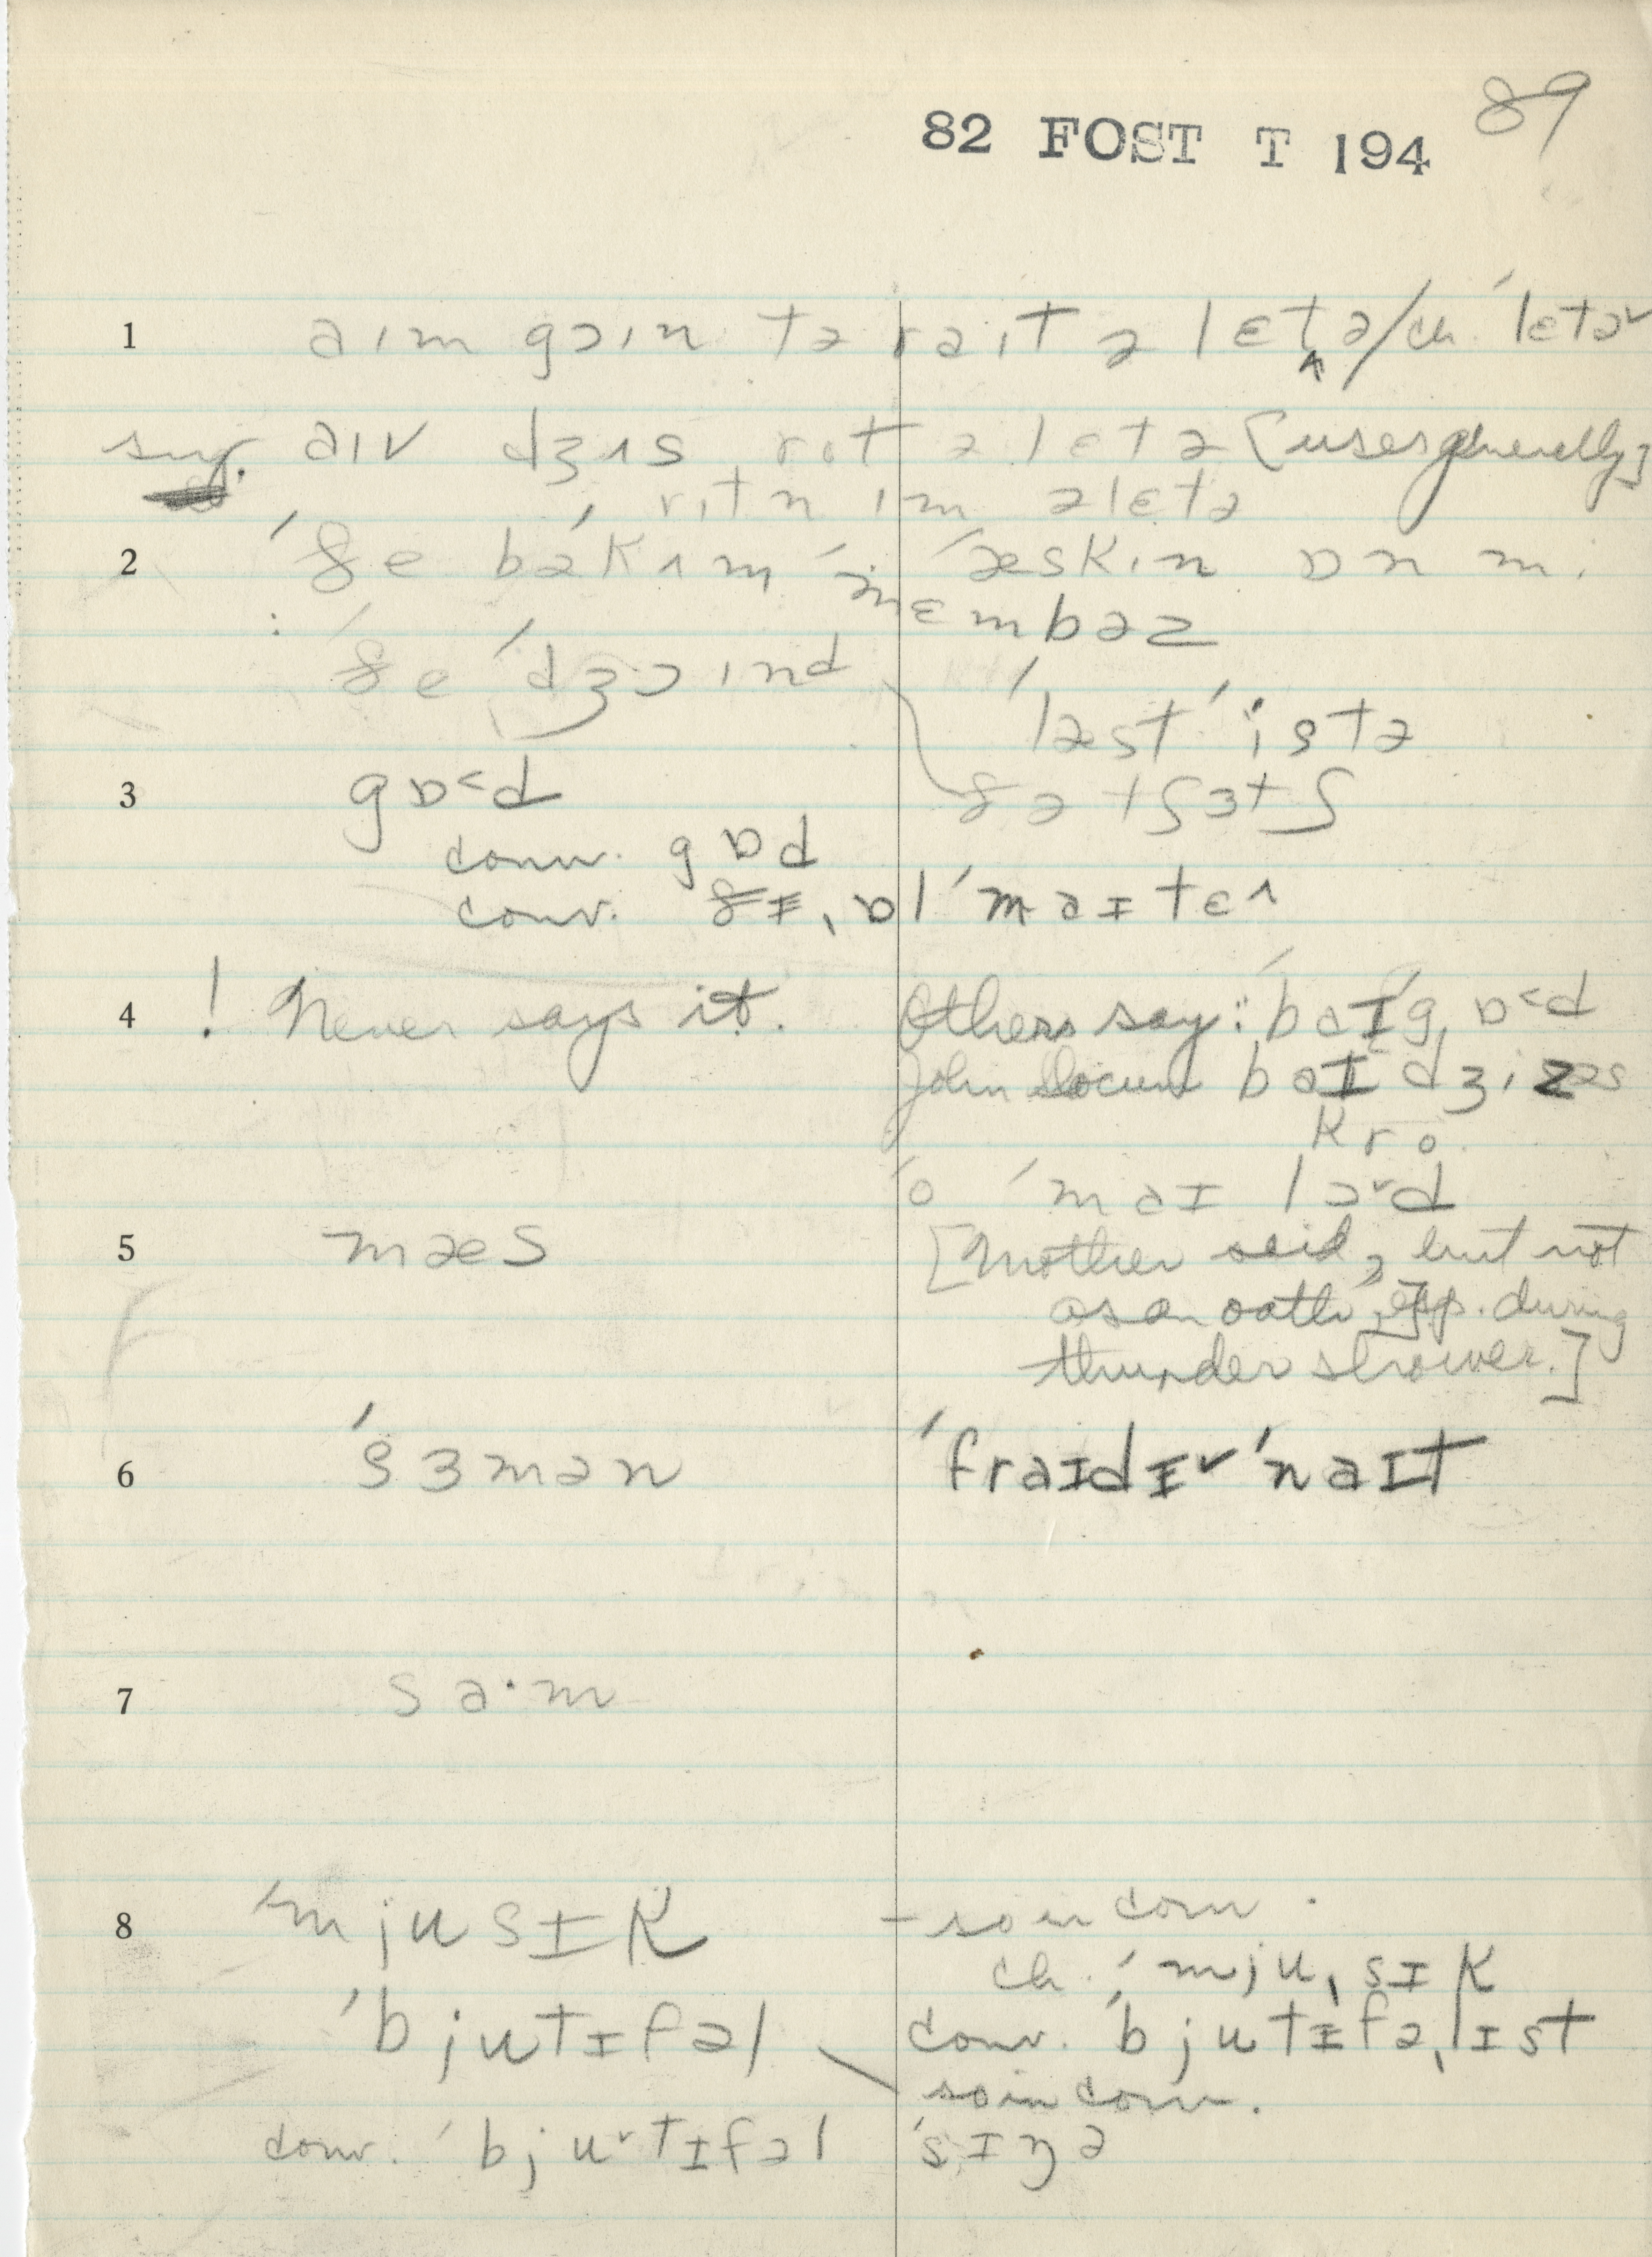 89
82 FOST T 194
1 aɪm gɔɪn tə raɪt ə lɛt̬ə/ch. ˈlɛtə˅
sug. aɪv dʒʌs rot ə lɛtə [uses generally]
rɪtn ɪm ə lɛtə
2 ˈðe bəˈkʌm ˈæskɪn ɒn mi
ˈmɛmbəz
ˈðe ˈdʒɔɪnd
ˈlæst ˈistə
ðə tʃɜtʃ
3 gɒ˂d
conv. gɒd
conv. ðɪ ˌɒlˈmaɪtɛɪ
4 ! Never says it. Others say: ˈbaɪ ˈgɒ˂d
John Slocum baɪ dʒizəs
kro
ˈo ˈmaɪ lɔ˅d
5 mæs [Mother said, but not
as an oath, esp. during
thunder shower.]
6 ˈsɜmən ˈfraɪdɪ˅ ˈnaɪt
7 sa·m
8 ˈmjusɪk – so in conv.
ch. ˈmjuˌsɪk
ˈbjutɪfəl conv. ˈbjutɪfəˌlɪst
so in conv.
conv. ˈbju˅tɪfəl ˈsɪŋə